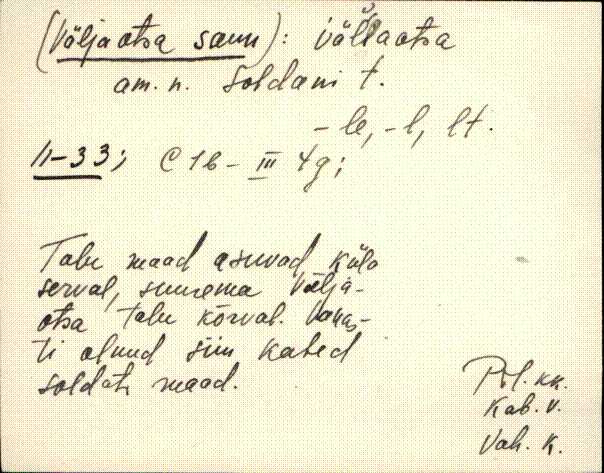 (Väljaotsa saun): väĺĺaotsa
am. n. Soldani t.
-le, -l, lt.
11-33; C 1b - III 4g;
Talu maad asuvad küla
serval, suurema Välja-
otsa talu kõrval. Vanas-
ti olnud siin kahed
soldati maad.
Prl. kk.
Kab. v.
Vah. k.